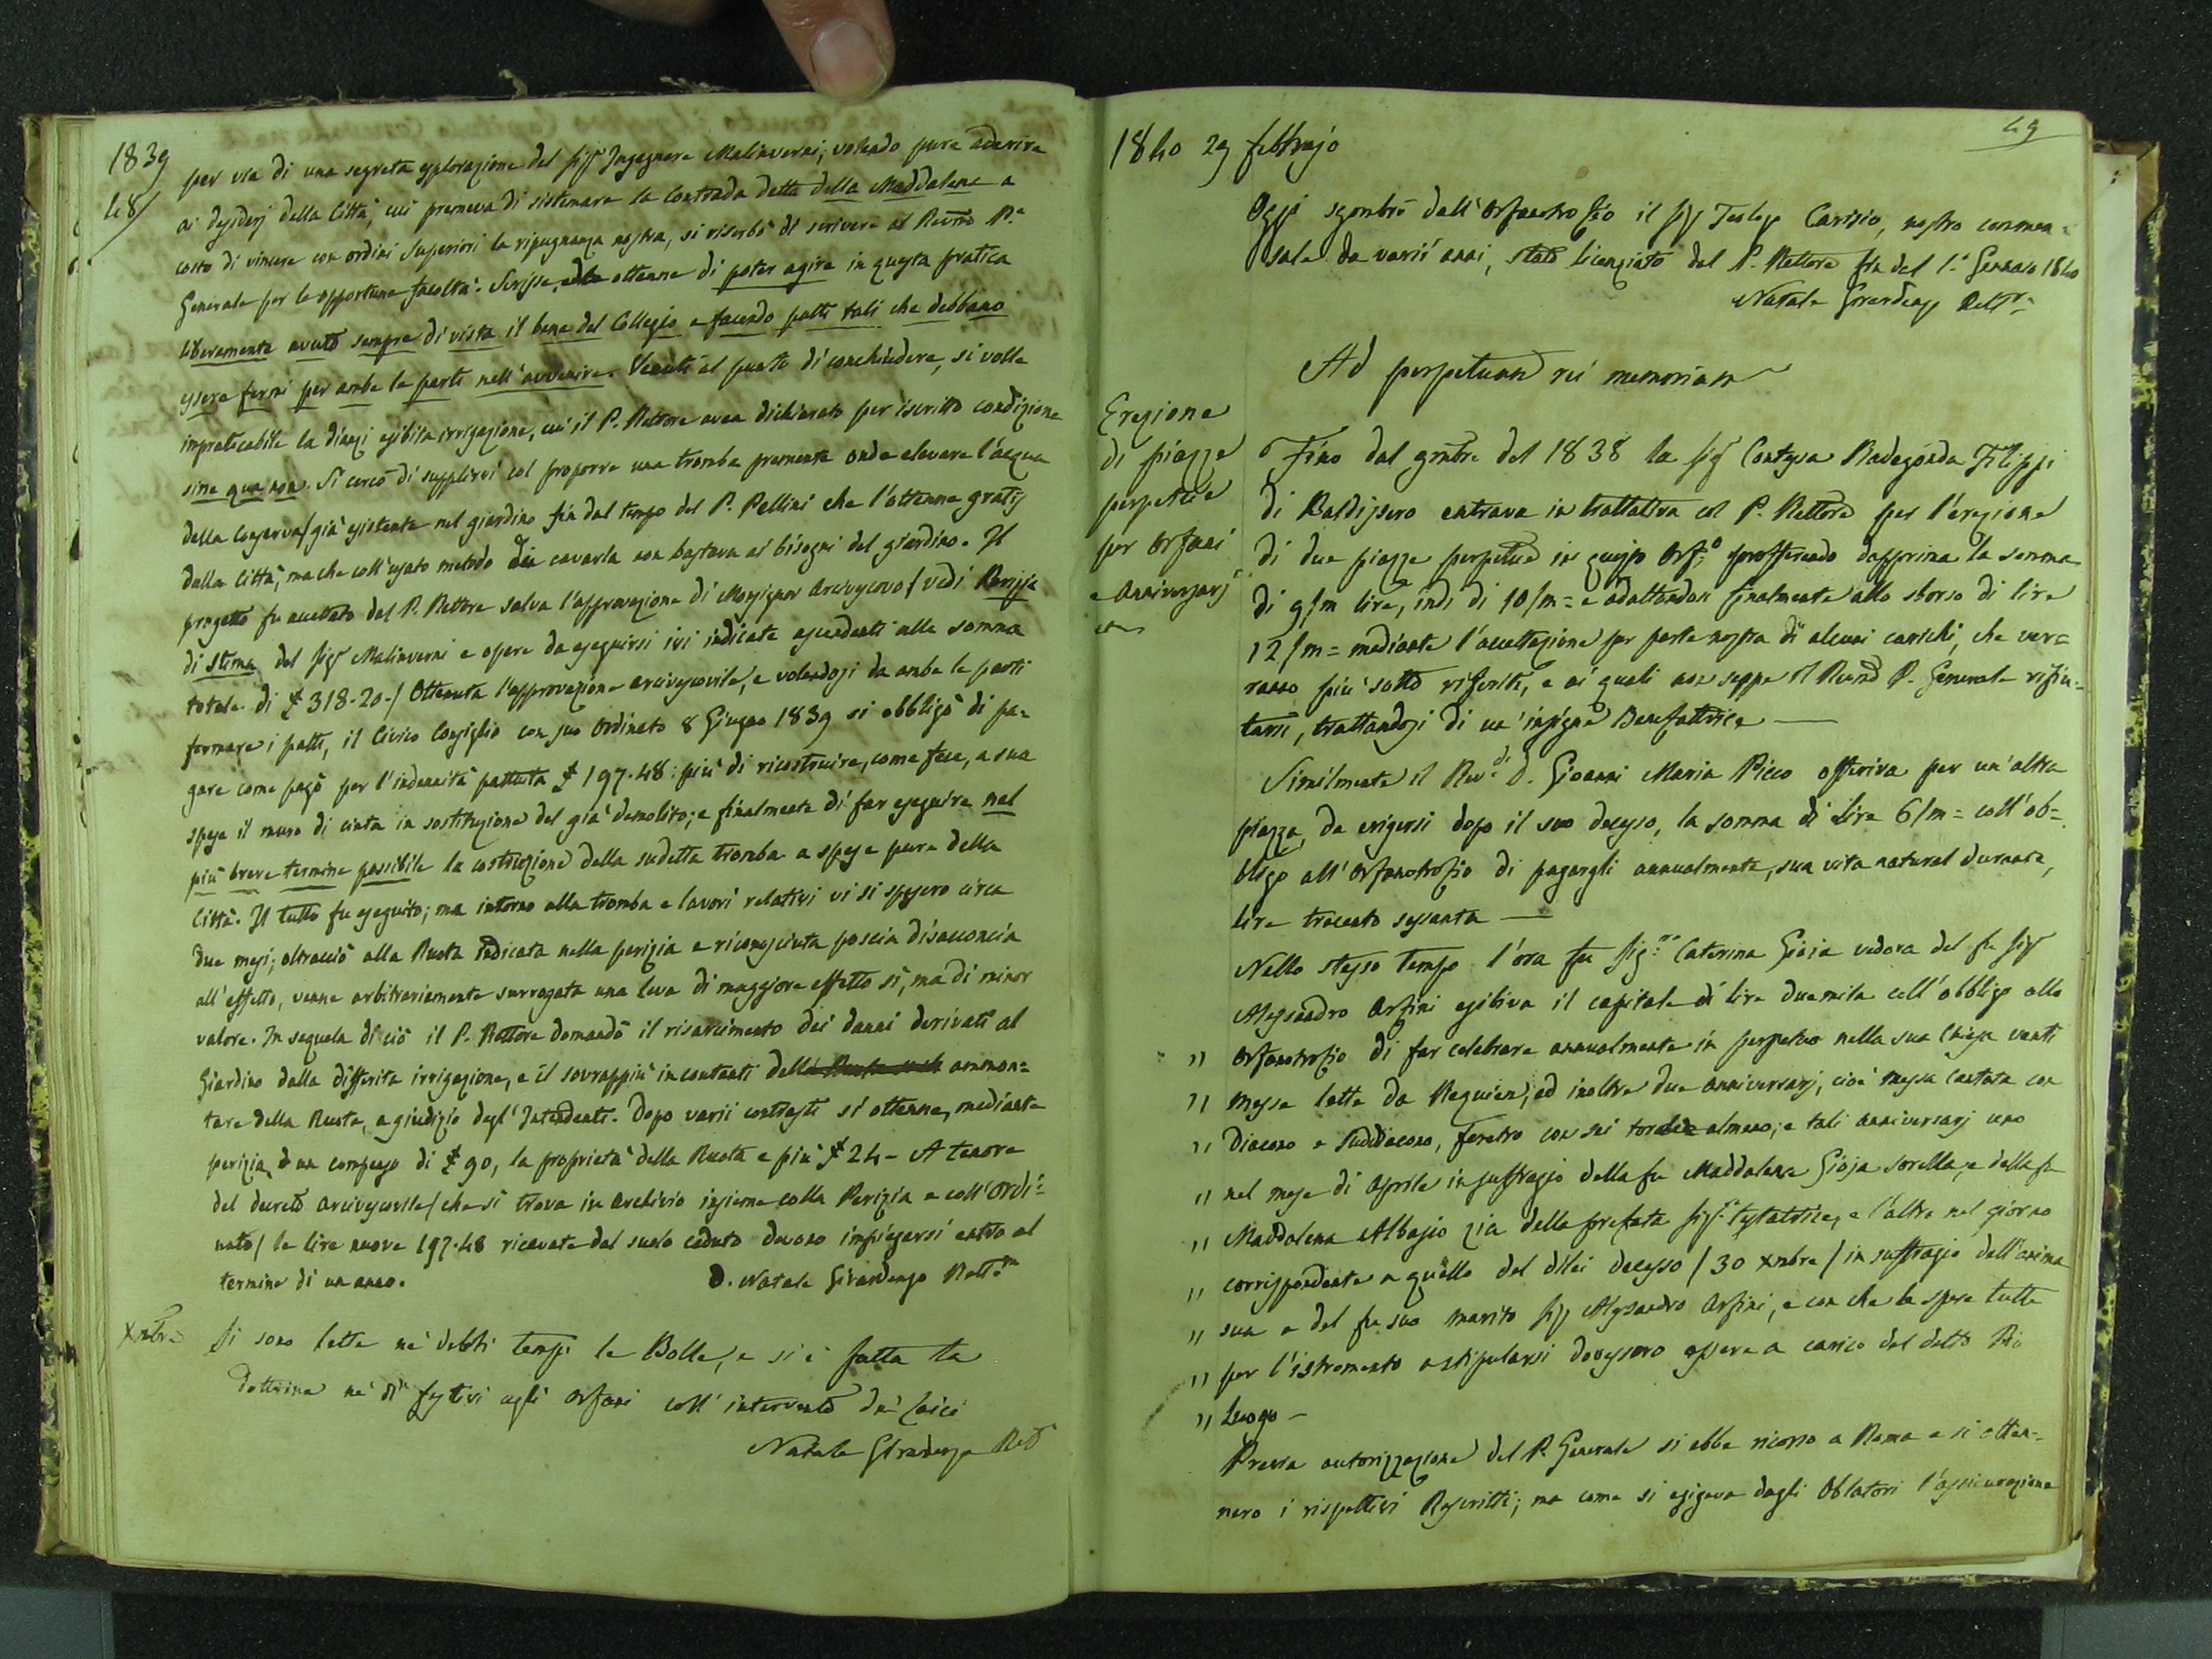 1839
48/
per via di una segreta esplorazione del Sigr Ingegnere Malinverni, volendo pure aderire
ai desiderj della Città, cui premeva di sistemare la Contrada detta della Maddalena a
costo di vincere con ordini Superiori la ripugnanza nostra, si riserbò di scrivere al Revmo Pe
Generale per le opportune facoltà. Scrisse, ottenne di poter agire in questa pratica
liberamente avuto sempre di vista il bene del Collegio e facendo patti tali che debbano
essere fermi per ambe le parti nell'avvenire. Venuti al punto di conchiudere, si volle
impraticabile la dianzi esibita irrigazione, cui il P. Rettore avea dichiarato per iscritto condizione
sine qua non. Si cercò di supplirvi col proporre una tromba premente onde elevare l'acqua
della Conserva/già esistente nel giardino fin dal tempo del P. Pellini che l'ottenne gratis
dalla Città, ma che coll'usato metodo di cavarla non bastava ai bisogni del giardino. Il
progetto fu accettato dal P. Rettore salva l'approvazione di Monsignor Arcivescovo/vedi Perizia
di stima del Sigr Malinverni e opere da eseguirsi ivi indicate ascendenti alla somma
totale di £ 318-20-/ Ottenuta l'approvazione arcivescovile, e volendosi da ambe le parti
fermare i patti, il Civico Consiglio con suo Ordinato 8 Giugno 1839 si obbligò di pa-
gare come pagò per l'indennità pattuta £ 197.48: più di ricostruire, come fece, a sua
spesa il muro di cinta in sostituzione del già demolito; e finalmente di far eseguire nel
più breve termine possibile la costruzione della sudetta tromba a spese pure della
Città. Il tutto fu eseguito; ma intorno alla tromba e lavori relativi vi si spesero circa
due mesi; oltracciò alla Ruota indicata nella perizia e riconosciuta poscia disacconcia
all'effetto, venne arbitrariamente surrogata una leva di maggiore effetto sì, ma di minor
valore. In sequela di ciò il P. Rettore domandò il risarcimento dei danni derivati al
Giardino dalla differita irrigazione, e il sovrappiù in contanti dell' ammon=
tare della Ruota, a giudizio degl'Intendenti. Dopo varii contrasti si ottenne, mediante
perizia, un compenso di £ 90, la proprietà della Ruota e più £ 24 - A tenore
del decreto arcivescovile/che si trova in Archivio insieme colla Perizia e coll'Ordi=
nato/ le lire nuove 197.48 ricavate dal suolo ceduto devono impiegarsi entro al
termine di un anno. D. Natale Girardengo Rett.re
Xmbre Si sono lette ne' debiti tempi le Bolle, e si è fatta la
dottrina ne' dì festivi agli orfani coll'intervento de' laici
Natale Girardengo Rett
49
1840 29 febbrajo
Oggi sgombrò dall'Orfanotrofio il Sigr Teologo Carisio, nostro commen=
sale da varii anni, stato licenziato dal P. Rettore fin dal 1.° Gennaio 1840
Natale Girardengo Rettre
Ad perpetuam rei memoriam
Erezione
di piazze
perpetue
per orfani
e Anniversarj
Fino dal 1838 la Sigra Contessa Radegonda Filippi
di Baldissero entrava in trattativa col P. Rettore per l'erezione
di due piazze perpetue in questo Orf.o profferendo dapprima la somma
di 9/m lire, indi di 10/m = e adattandosi finalmente allo sborso di lire
12/m = mediante l'accettazione per parte nostra di alcuni carichi, che ver=
ranno più sotto riferiti, e ai quali non seppe il Revmo P. Generale rifiu=
tarsi, trattandosi di un'insigne Benefattrice —
Similmente il Revdo D. Gioanni Maria Picco offeriva per un'altra
piazza, da erigersi dopo il suo decesso, la somma di Lire 6/m = coll'ob=
bligo all'Orfanotrofio di pagargli annualmente, sua vita natural durante,
lire trecento sessanta —
Nello stesso tempo l'ora fu Sig.ra Caterina Gioja vedova del fu Sigr
Alessandro Orsini esibiva il capitale di lire duemila coll'obbligo allo
" Orfanotrofio di far celebrare annualmente in perpetuo nella sua Chiesa venti
" messe lette da Requiem, ed inoltre due anniversarj, cioè messa cantata con
" Diacono e Suddiacono, feretro con sei torcie almeno; e tali anniversarj uno
" nel mese di Aprile in suffragio della fu Maddalena Gioja sorella, e della fu
" Maddalena Albasio zia della prefata Sigra testatrice, e l'altro nel giorno
" corrispondente a quello del dilei decesso / 30 Xmbre / in suffragio dell'anima
" sua e del fu suo marito Sigr Alessandro Orsini, e con che le spese tutte
" per l'istromento a stipularsi dovessero essere a carico del detto Pio
" Luogo -
Previa autorizzazione del P. Generale si ebbe ricorso a Roma e si otten=
nero i rispettivi Rescritti; ma come si esigeva dagli Oblatori l'assicurazione